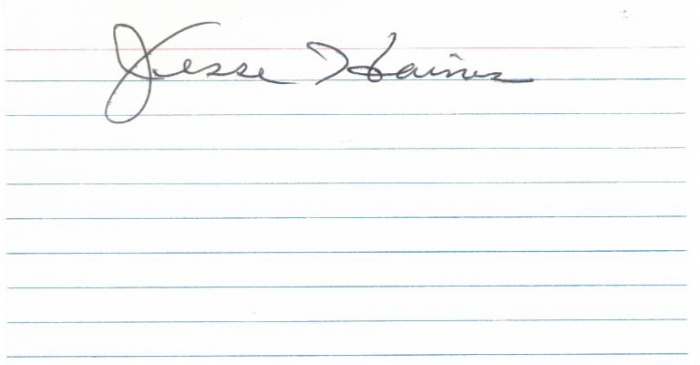 Jesse Haines